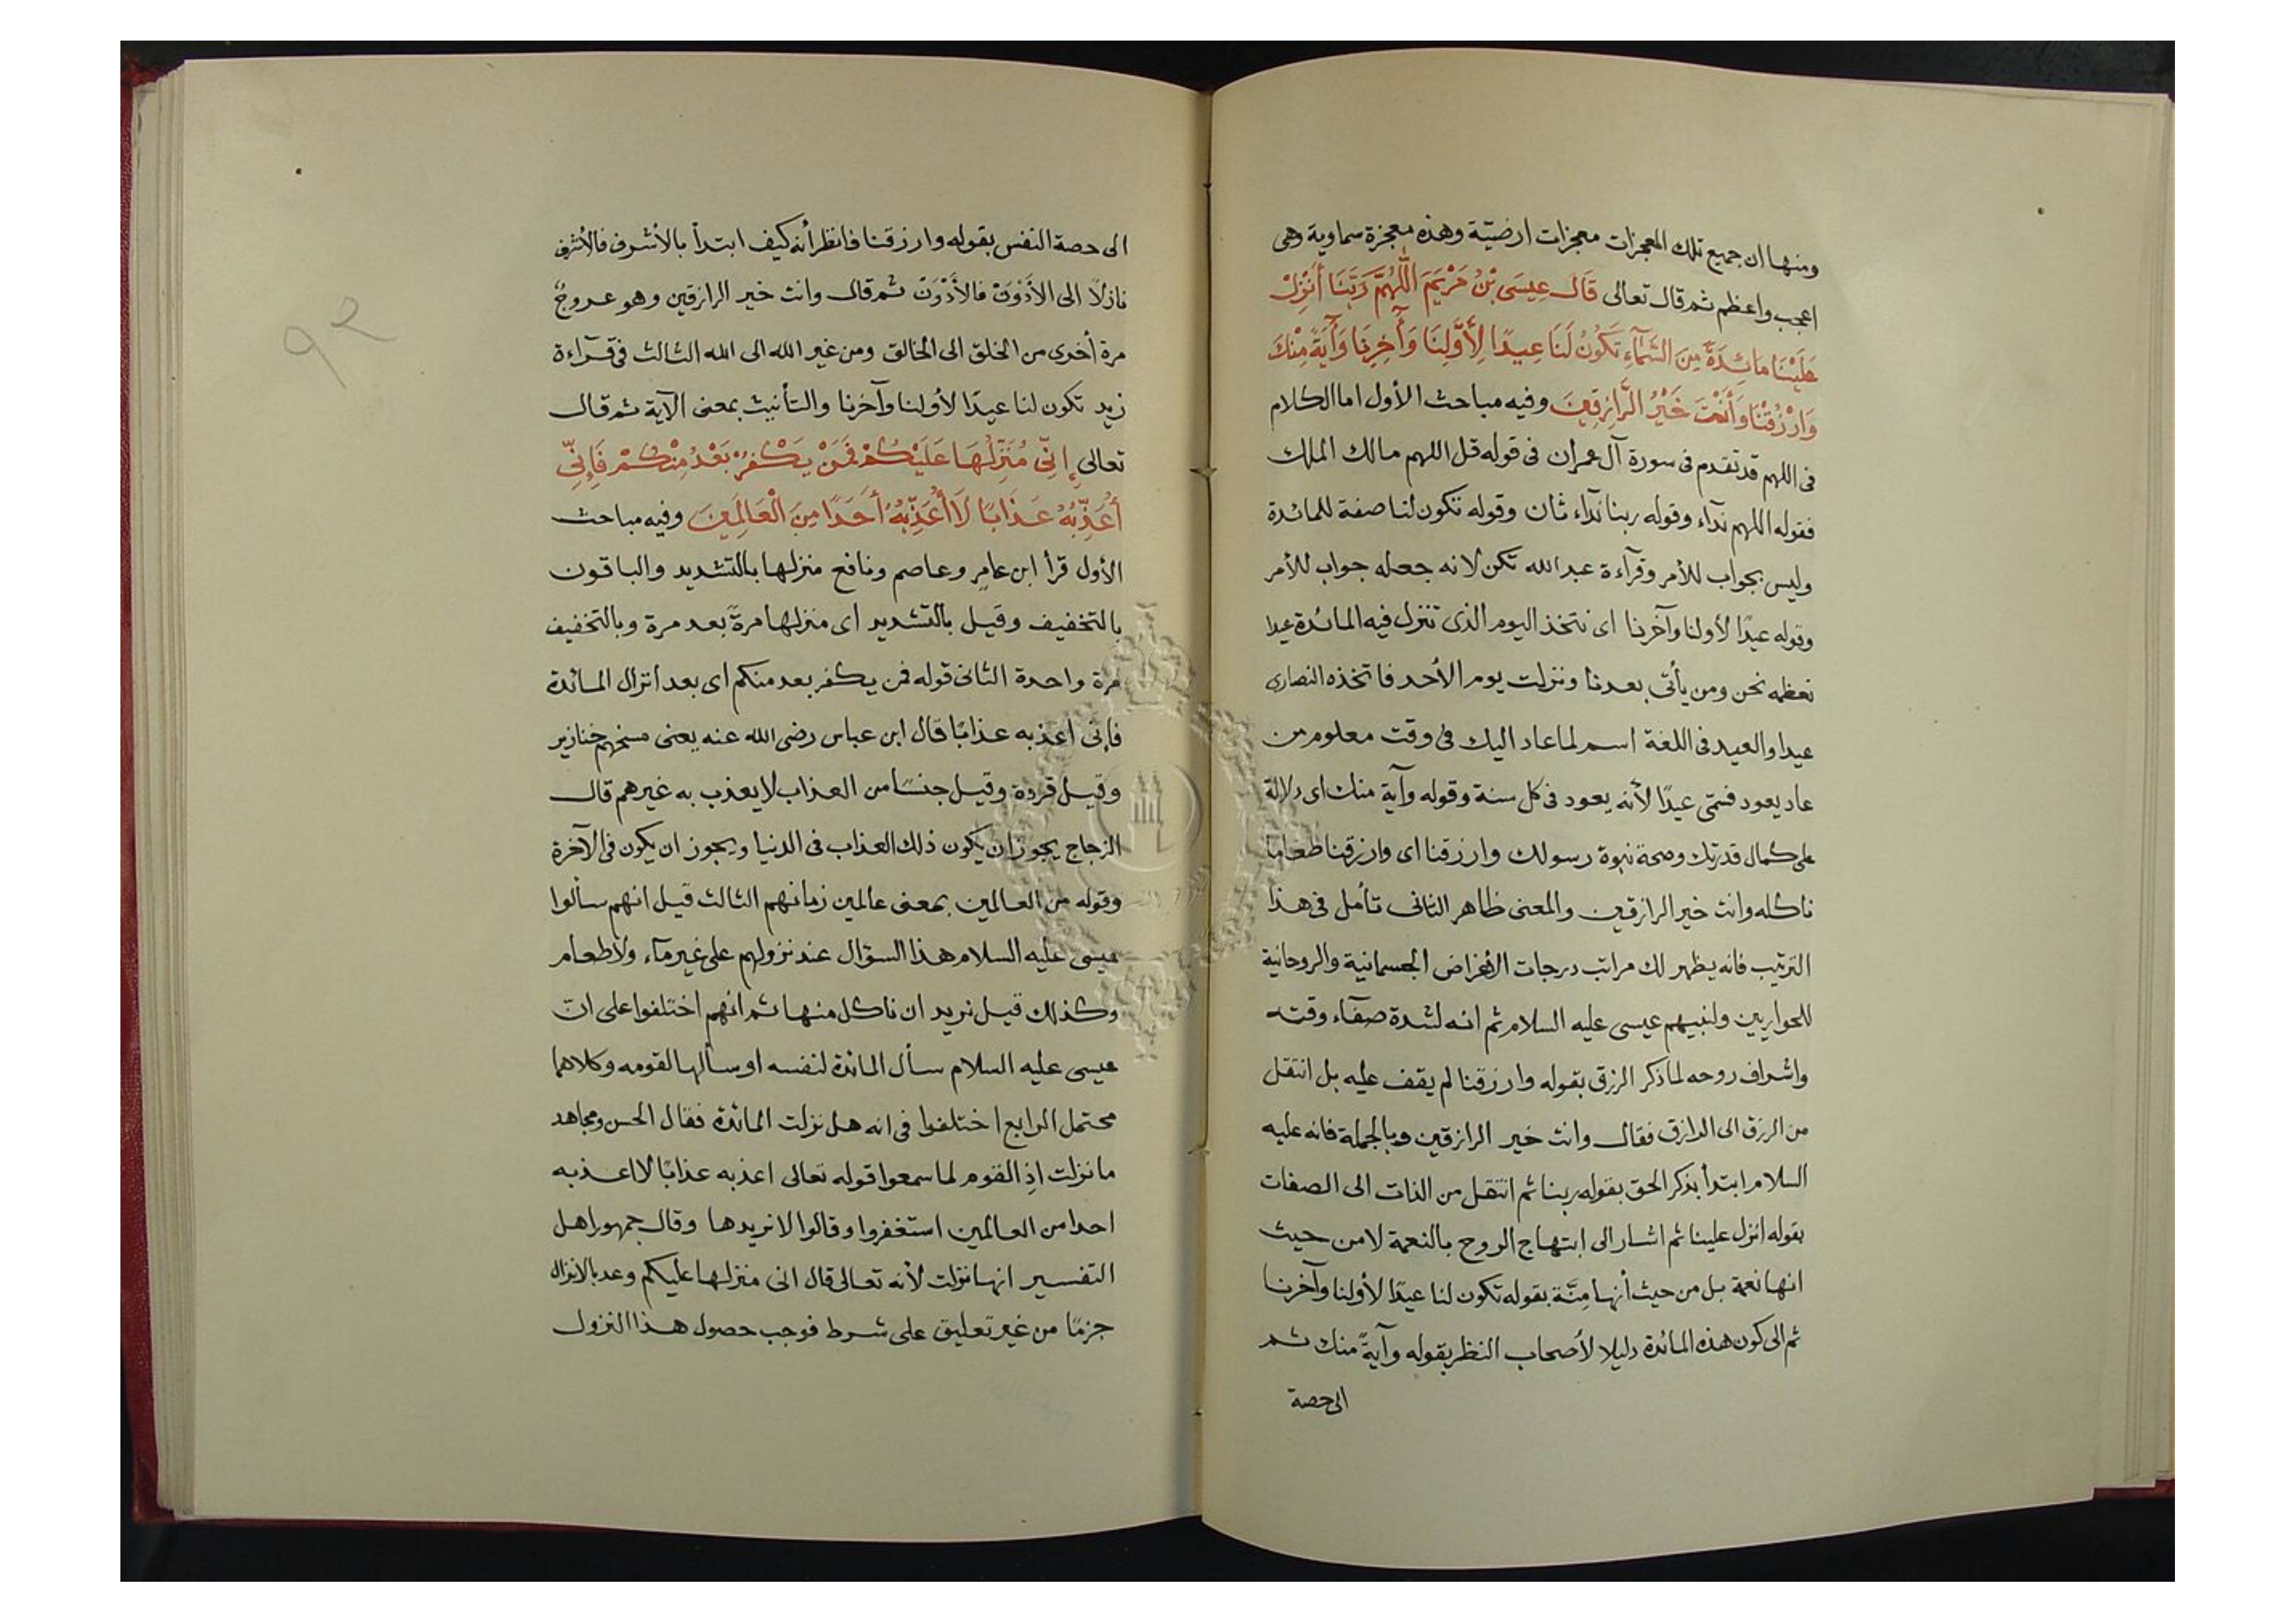 ومنها ان جميع تلك المعجزات معجزات ارضيّة وهذه معجزة سماوية وهى
اعجب واعظم ثم قال تعالى قَالَ عِيسَى بْنُ مَرْيَمَ اللّٰهُمَّ رَبَّنَا أَنْزِلْ
عَلَيْنَا مَائِدَةً مِنَ السَّمَآءِ تَكُونُ لَنَا عِيدًا لِأَوَّلِنَا وَآخِرِنَا وَآيَةً مِنْكَ
وَارْزُقْنَا وَأَنْتَ خَيْرُ الرَّازِقِينَ وفيه مباحث الأول اما الكلام
فى اللهم قد تقدم فى سورة آل عمران فى قوله قل اللهم مالك الملك
فقوله اللهم ندآء وقوله ربنا ندآء ثان وقوله تكون لنا صفة للمائدة
وليس بجواب للأمر وقرآءة عبد الله تكن لانه جعله جواب للأمر
وقوله عيدًا لأولنا وآخرنا اى نتخذ اليوم الذى تنزل فيه المائدة عيدا
نعظمه نحن ومن يأتى بعدنا ونزلت يوم الأحد فاتخذه النصارى
عيدا والعيد فى اللغة اسم لما عاد اليك فى وقت معلوم من
عاد يعود فسمّى عيدًا لأنه يعود فى كل سنة وقوله وآية منك اى دلالة
على كمال قدرتك وصحة نبوة رسولك وارزقنا اى وارزقنا طعاما
ناكله وانت خير الرازقين والمعنى ظاهر الثانى تأمل فى هذا
الترتيب فانه يظهر لك مراتب درجات الأغراض الجسمانية والروحانية
للحواريين ولنبيهم عيسى عليه السلام ثم انه لشدة صفآء وقته
واشراف روحه لما ذكر الرزق بقوله وارزقنا لم يقف عليه بل انتقل
من الرزق الى الرازق فقال وانت خير الرازقين وبالجملة فانه عليه
السلام ابتدأ بذكر الحق بقوله ربنا ثم انتقل من الذات الى الصفات
بقوله انزل علينا ثم اشار الى ابتهاج الروح بالنعمة لا من حيث
انها نعمة بل من حيث أنها مِنَّة بقوله تكون لنا عيدًا لأولنا وآخرنا
ثم الى كون هذه المائدة دليلا لأصحاب النظر بقوله وآيةً منك ثم
الى حصة
الى حصة النفس بقوله وارزقنا فانظر أنه كيف ابتدأ بالأشرف فالأشرف
نازلًا الى الأَدْوَن فالأَدْوَن ثم قال وانت خير الرازقين وهو عروجٌ
مرة أخرى من الخلق الى الخالق ومن غير الله الى الله الثالث فى قرآءة
زيد تكون لنا عيدًا لأولنا وآخرنا والتأنيث بمعنى الآية ثم قال
تعالى إِنِّي مُنَزِّلُهَا عَلَيْكُمْ فَمَنْ يَكْفُرْ بَعْدُ مِنْكُمْ فَإِنِّي
أُعَذِّبُهُ عَذَابًا لَا أُعَذِّبُهُ أَحَدًا مِنَ الْعَالَمِينَ وفيه مباحث
الأول قرأ ابن عامر وعاصم ونافع منزلها بالتشديد والباقون
بالتخفيف وقيل بالتشديد اى منزلها مرةً بعد مرة وبالتخفيف
مرة واحدة الثانى قوله فمن يكفر بعد منكم اى بعد انزال المائدة
فإنى اعذبه عذابًا قال ابن عباس رضى الله عنه يعنى مسخهم خنازير
وقيل قردة وقيل جنسًا من العذاب لا يعذب به غيرهم قال
الزجاج يجوز ان يكون ذلك العذاب فى الدنيا ويجوز ان يكون فى الآخرة
وقوله من العالمين بمعنى عالمين زمانهم الثالث قيل انهم سألوا
عيسى عليه السلام هذا السؤال عند نزولهم على غير مآء ولا طعام
وكذلك قيل نريد ان ناكل منها ثم انهم اختلفوا على انّ
عيسى عليه السلام سأل المائدة لنفسه او سألها لقومه وكلاهما
محتمل الرابع اختلفوا فى انه هل نزلت المائدة فقال الحسن ومجاهد
ما نزلت اذِ القوم لما سمعوا قوله تعالى اعذبه عذابًا لا اعذبه
احدا من العالمين استغفروا وقالوا لا نريدها وقال جمهور اهل
التفسير انها نزلت لأنه تعالى قال انى منزلها عليكم وعد بالانزال
جزمًا من غير تعليق على شرط فوجب حصول هذا النزول
٩٢